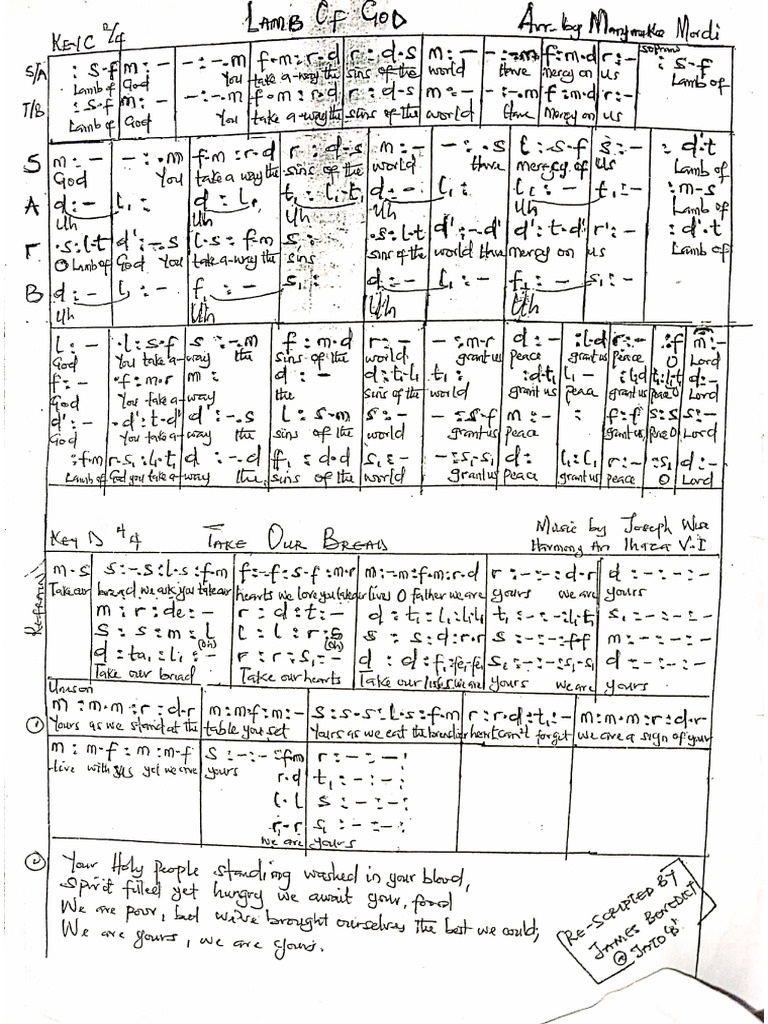 LAMB OF GOD Arr. by Manymaka Mordi
KEY C 2/4
S/A : s-f m : - - : -.m f.m : r.d r : d.s m : - - : -.m f : m.d r : - soprano : s-f
Lamb of God You take a-way the sins of the world Have mercy on us Lamb of
T/B : s-f m : - - : -.m f.m : r.d r : d-s m : - - : -.m f : m.d r : -
Lamb of God You take a-way the sins of the world Have mercy on us
S m : - - : .m f.m : r.d r : d.s m : - - : .s l : s-f s : - : d'.t
God You take a way the sins of the world Have mercy of us Lamb of
A d : - l₁ : d : l₁ t₁ : l₁.t₁ d : - l₁ : - l₁ : - t₁ : - : m-s
Uh Uh Uh Uh Uh Lamb of
T .s : l.t d' : -.s l.s : f.m s : .s : l.t d' : -.d' d' : t.d' r' : - : d'.t
O Lamb of God You take a-way the sins sins of the world Have mercy on us Lamb of
B d : - l₁ : - f₁ : - s₁ : d : - l₁ : - f₁ : - s₁ : -
Uh Uh Uh Uh
l : - .l : s.f s : -.m f : m.d r : - - : m-r d : - : l.d r : - : f m : -
God You take a-way the sins of the world grant us peace grant us peace O Lord
f : - .f : m.r m : d : - d : t₁.l₁ t₁ : : d.t₁ l₁ - : l₁.d t₁ : l₁.t₁ d : -
God You take a-way the sins of the world grant us peace grant us peace O Lord
d' : - .d' : t.d' d' : -.s l : s-m s : - - : s.f m : - : f : f s : s s : -
God You take a-way the sins of the world grant us peace grant us peace O Lord
: f.m r.s₁ : l₁.t₁ d : -.d f₁ : d.d s₁ : - - : s₁.s₁ d : l₁ : l₁ r : - : s₁ d : -
Lamb of God you take a-way the sins of the world grant us peace grant us peace O Lord
KEY D 4/4 TAKE OUR BREAD Music by Joseph Wise
Harmony Arr Ihaza V.I
Refrain
m.s s : -.s : l.s : f.m f : -.f : s.f : m.r m : -.m : f.m : r.d r : - : - : d.r d : - : - : -
Take our bread we ask you take our hearts we love you take our lives O father we are yours we are yours
m : r : de : - r : d : t : - d : t₁ : l₁ : l₁.l₁ t₁ : - : - : l₁.t₁ s₁ : - : - : -
s : s : m : l l : l : r : s s : s : d : r.r s : - : - : f.f m : - : - : -
(Oh) (Oh)
d : ta₁ : l₁ : - r : r : s₁ : - d : d : f₁ : fe₁.fe₁ s₁ : - : - : s₁.s₁ d : - : - : -
Take our bread Take our hearts Take our lives we are yours we are yours
Unison
① m : m.m : r : d.r m : m.f : m : - s : s.s : l.s : f.m r : r.d : t₁ : - m : m.m : r : d.r
Yours as we stand at the table you set Yours as we eat the bread our heart can't forget we are a sign of your
m : m.f : m : m.f s : - : - : f.m r : - : - : -
live with us yet we are yours
r.d t₁ : - : - :
l.l s : - : - :
r.r s₁ : - : - :
we are yours
② Your Holy people standing washed in your blood,
Spirit filled yet hungry we await your food
We are poor, but we've brought ourselves the best we could;
We are yours, we are yours.
RE-SCRIPTED BY
JAMES BENEDICT
@ JATO 'B'